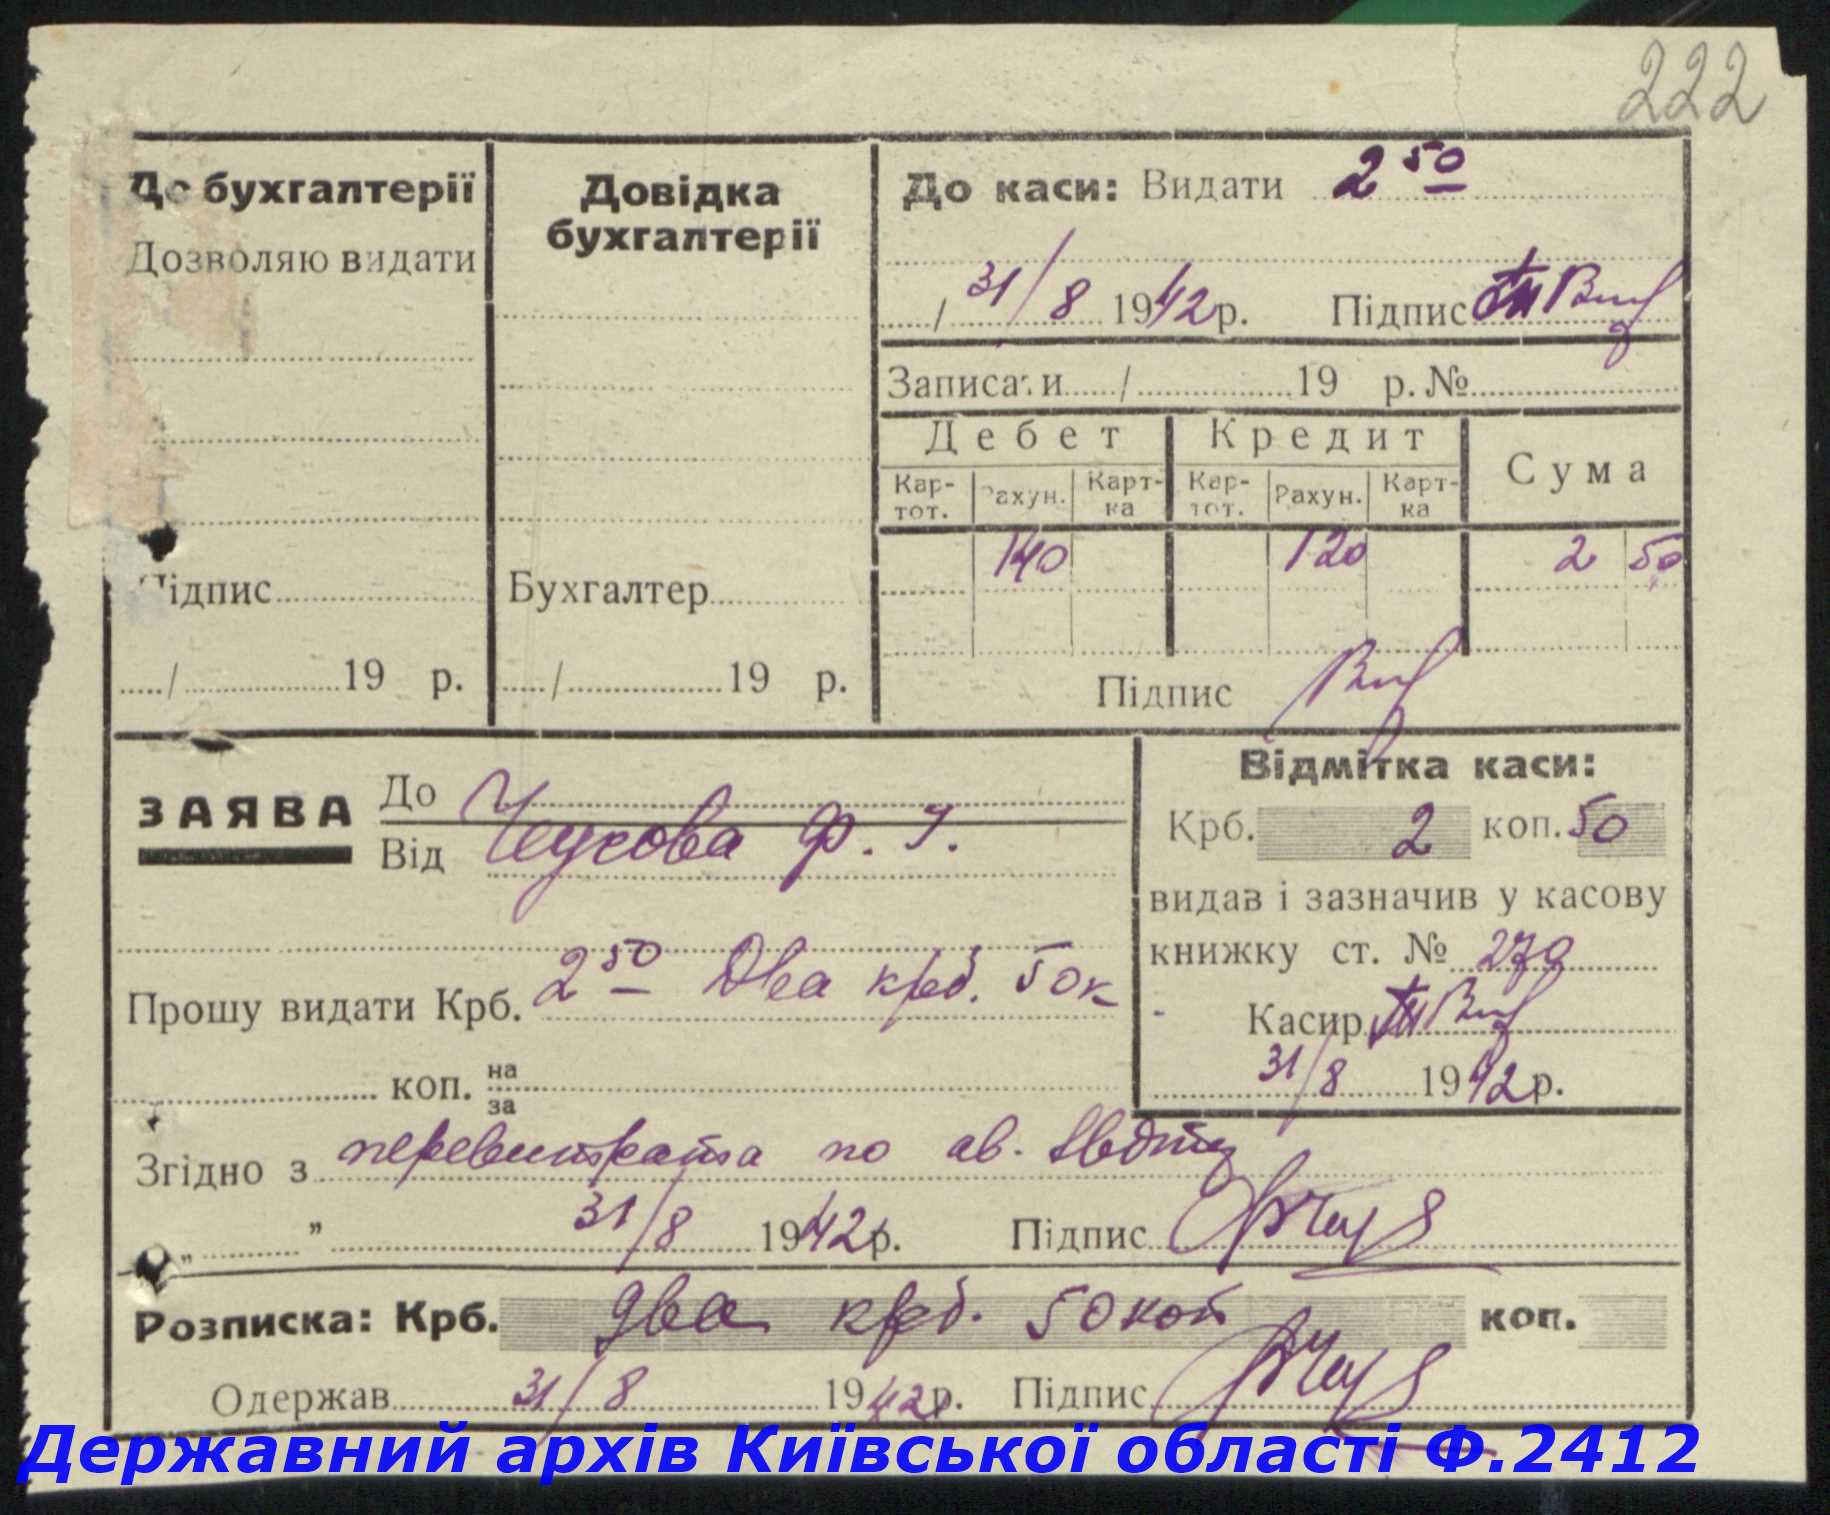 222
До бухгалтерії
Дозволяю видати
Підпис
/ 19 р.
Довідка
бухгалтерії
Бухгалтер
/ 19 р.
До каси: Видати 2 50
/ 31/8 1942р. Підпис
Записати / 19 р. №
Дебет Кредит Сума
Кар-тот. Рахун. Карт-ка Кар-тот. Рахун. Карт-ка
140 120 2 50
Підпис
ЗАЯВА
До
Від Чусова Ф. І.
Прошу видати Крб. 2 50 Два крб. 50к
коп. на
за
Відмітка каси:
Крб. 2 коп. 50
видав і зазначив у касову
книжку ст. № 279
Касир
31/8 1942р.
Згідно з перевитрата по ав.
„ ” 31/8 1942р. Підпис
Розписка: Крб. два крб. 50 коп коп.
Одержав 31/8 1942р. Підпис
Державний архів Київської області Ф.2412